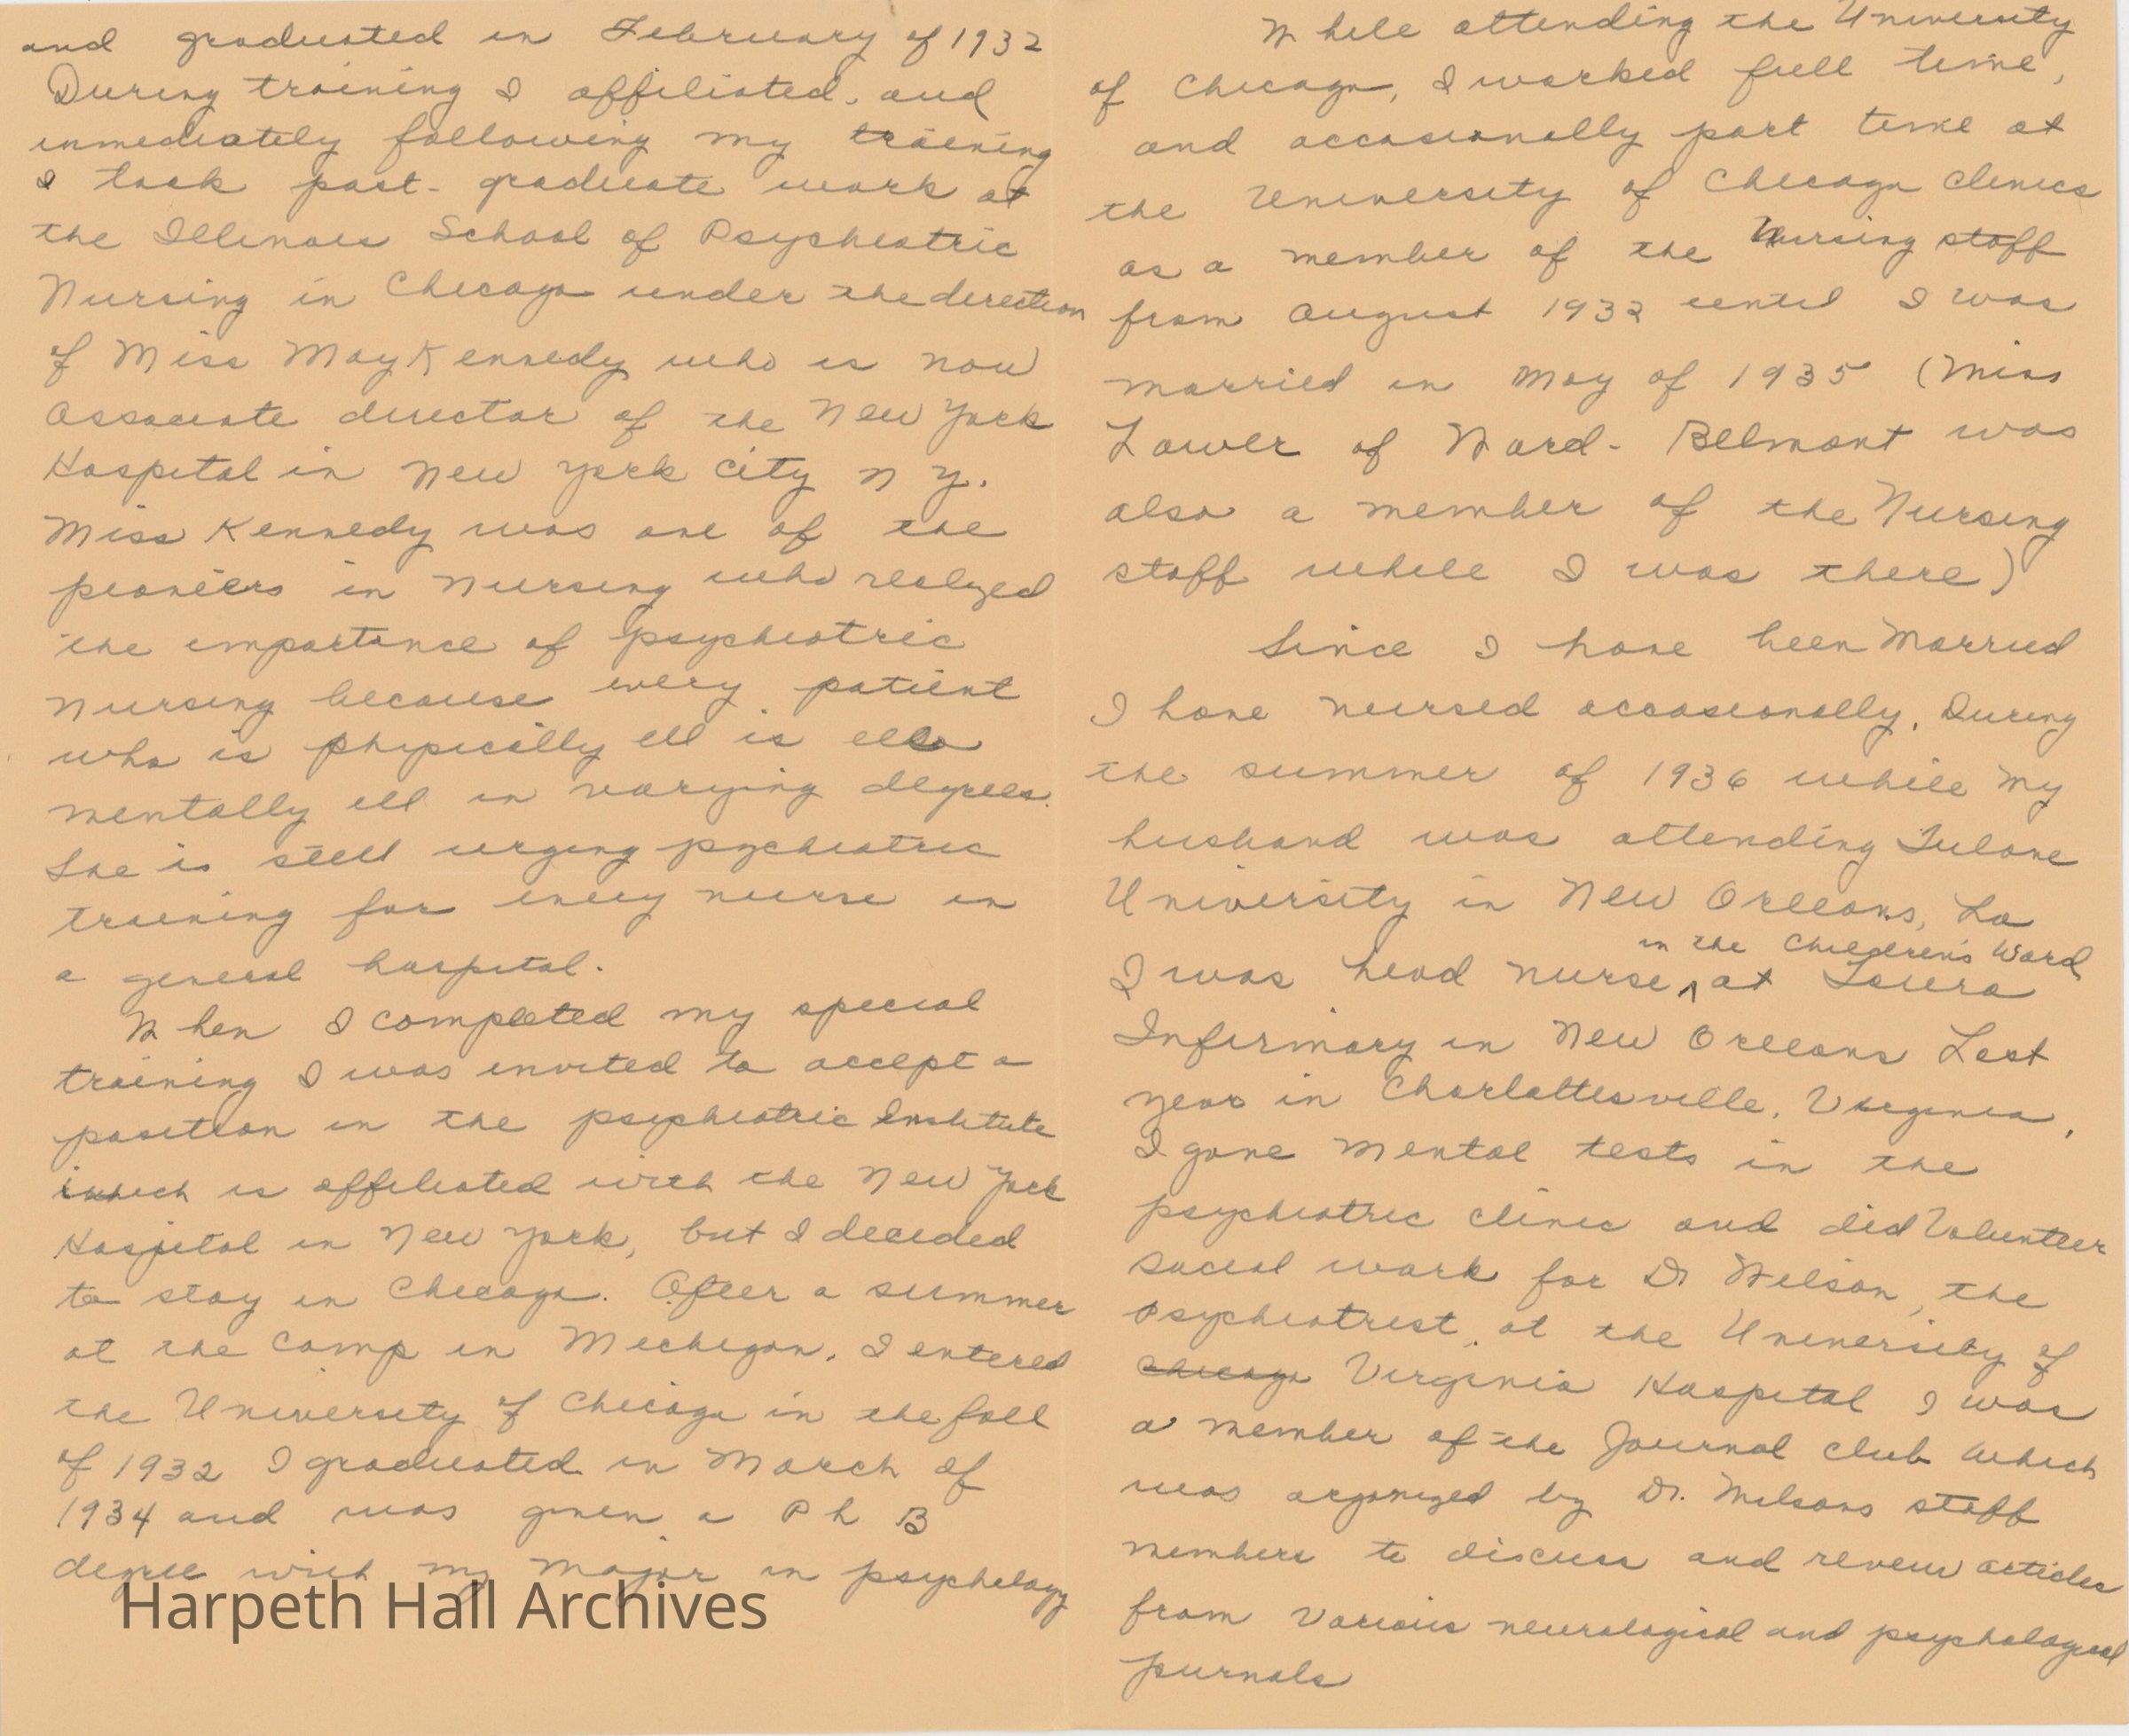 and graduated in February of 1932
During training I affiliated, and
immediately following my training
I took post-graduate work at
the Illinois School of Psychiatric
Nursing in Chicago under the direction
of Miss May Kennedy who is now
Associate director of the New York
Hospital in New York City N Y.
Miss Kennedy was one of the
pioneers in Nursing who realized
the importance of psychiatric
Nursing because every patient
who is physically ill is also
mentally ill in varying degrees.
She is still urging psychiatric
training for every nurse in
a general hospital.
When I completed my special
training I was invited to accept a
position in the psychiatric Institute
which is affiliated with the New York
Hospital in New York, but I decided
to stay in Chicago. After a summer
at the Camp in Michigan, I entered
the University of Chicago in the fall
of 1932 I graduated in March of
1934 and was given a Ph B
degree with my major in psychology
Harpeth Hall Archives
While attending the University
of Chicago, I worked full time,
and occasionally part time at
the University of Chicago Clinics
as a member of the Nursing staff
from August 1932 until I was
married in May of 1935 (Miss
Lower of Ward-Belmont was
also a member of the Nursing
staff while I was there)
Since I have been Married
I have nursed occasionally. During
the summer of 1936 while my
husband was attending Tulane
University in New Orleans, La
I was head nurse, in the Children's Ward at Toura
Infirmary in New Orleans Last
year in Charlottesville, Virginia,
I gave Mental tests in the
psychiatric clinic and did Volunteer
social work for Dr Wilson, the
Psychiatrist, at the University of
Chicago Virginia Hospital I was
a member of the Journal Club which
was organized by Dr. Wilsons staff
members to discuss and review articles
from various neurological and psychological
journals